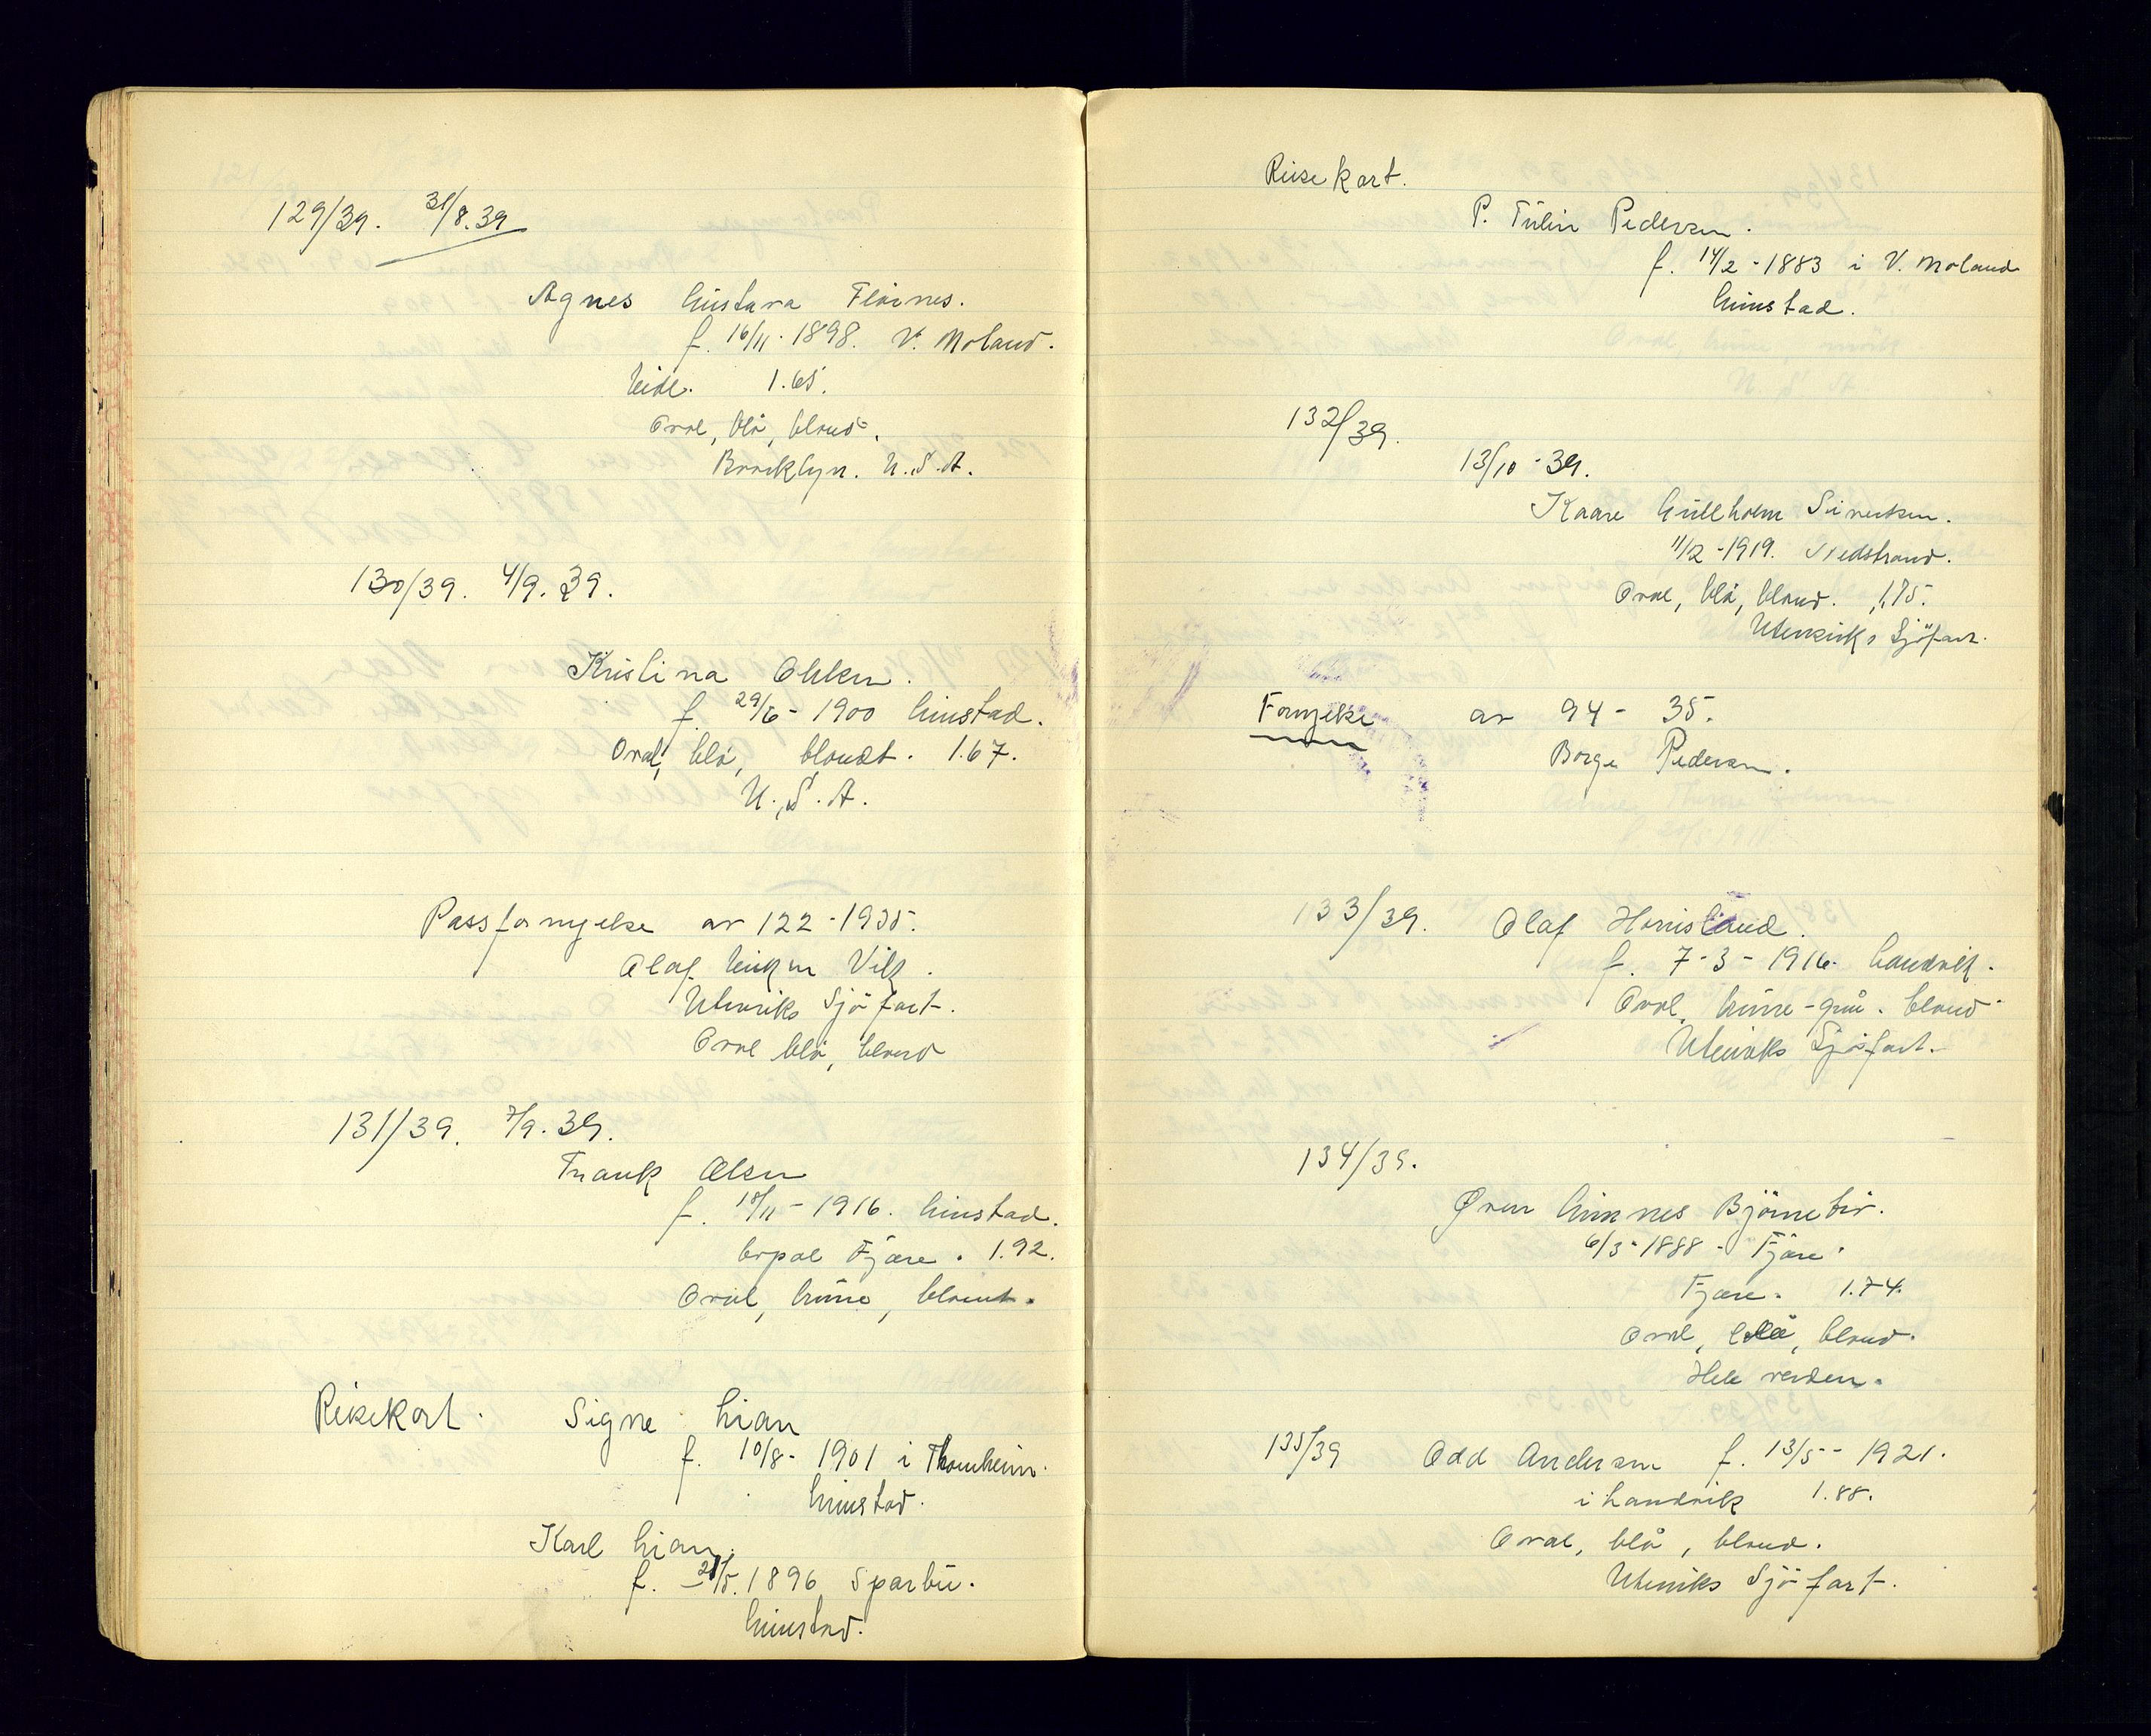 129/39. 31/8.39
Agnes Gustava
f. 16/11-1898. V. Moland.
Eide. 1.65.
Oval, blå, blond.
Brooklyn. U.S.A.
130/39. 4/9.39.
Kristina Olsen.
f. 29/6-1900 Grimstad.
Oval, blå, blondt. 1.67.
U.S.A.
Passfornyelse av 122-1935.
Olaf Vik.
Utenriks Sjöfart.
Oval blå, blond
131/39. 7/9.39.
Frank Olsen
f. 18/11-1916. Grimstad.
Fjære. 1.92.
Oval, brune, blond.
Reisekort. Signe Lian
f. 10/8-1901 i Trondheim.
Grimstad.
Karl Lian.
f. 21/5.1896 Sparbu.
Grimstad.
Reisekort.
P. Tulin Pedersen.
f. 14/2-1883 i V. Moland
Grimstad.
132/39.
13/10-39.
Kaare Gullholm Sivertsen.
11/2-1919. Nedstrand.
Oval, blå, blond. 1,75.
Utenriks Sjöfart.
Fornyelse av 94-35.
Borge Pedersen.
133/39. Olaf
f. 7-3-1916. Landvik.
Oval, brune-grå. blond
Utenriks Sjöfart.
134/39.
Bjørnetrø.
6/3-1888-Fjære.
Fjære. 1.74.
Oval, blå, blond.
Hele verden.
135/39 Odd Andersen f. 13/5-1921.
i Landvik 1.88.
Oval, blå, blond.
Utenriks Sjöfart.